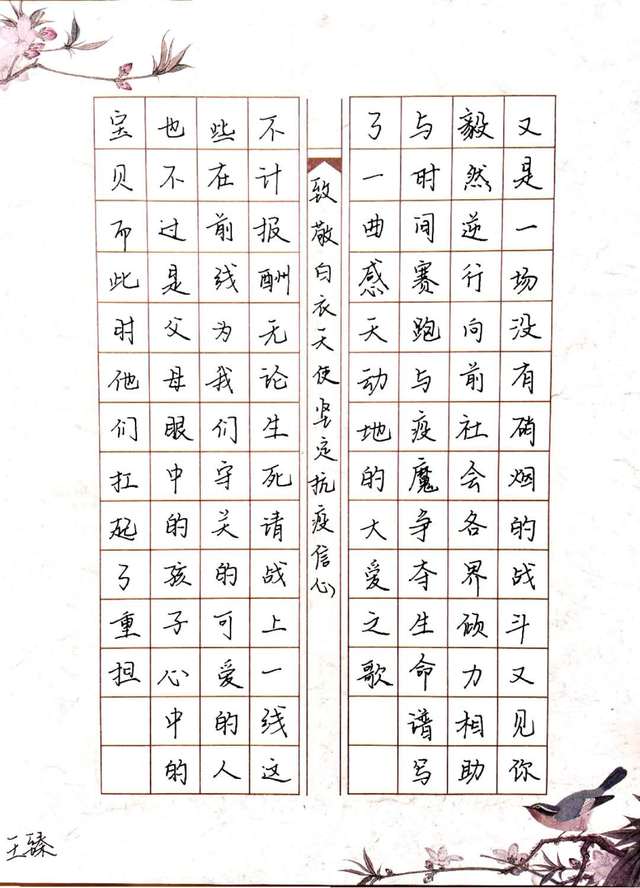 又是一场没有硝烟的战斗又见你
毅然逆行向前社会各界倾力相助
与时间赛跑与疫魔争夺生命谱写
了一曲感天动地的大爱之歌
致敬白衣天使坚定抗疫信心
不计报酬无论生死请战上一线这
些在前线为我们守关的可爱的人
也不过是父母眼中的孩子心中的
宝贝而此时他们扛起了重担
王臻